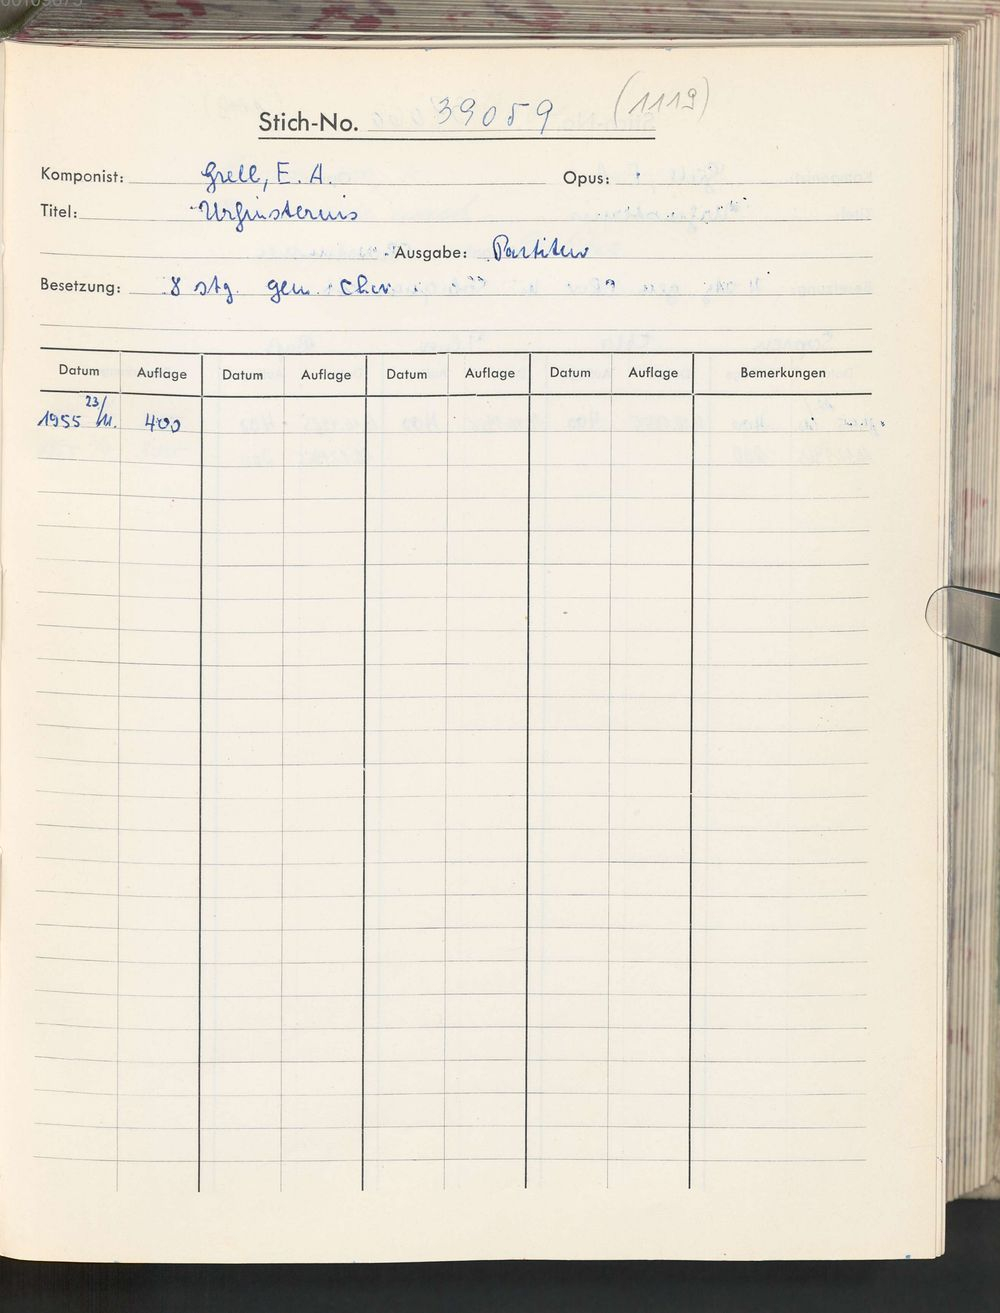 Stich-No. 39059 (1119)
Komponist: Grell, E. A. Opus:
Titel: Urfinsternis
Ausgabe: Partitur
Besetzung: 8 stg. gem. Chor
Datum Auflage Datum Auflage Datum Auflage Datum Auflage Bemerkungen
1955 23/11. 400